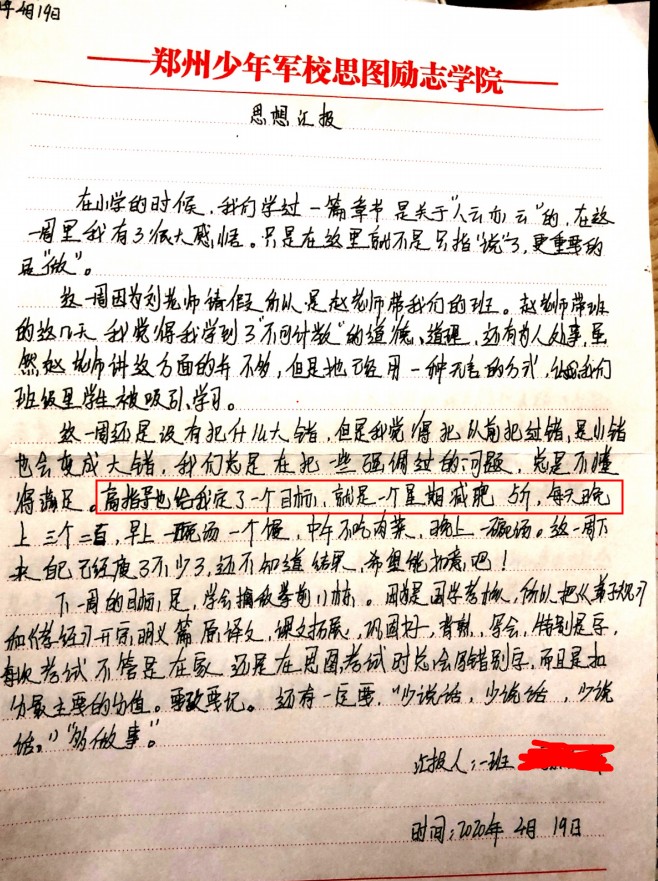 年4月19日
郑州少年军校思图励志学院
思想汇报
在小学的时候,我们学过一篇章节是关于"人云亦云"的,在这
一周里我有了很大感悟。只是在这里却不是只指"说"了,更重要的
是"做"。
这一周因为刘老师请假所以是赵老师带我们的班。赵老师带班
的这几天我觉得我学到了"不可计数"的道德、道理,还有为人处事,虽
然赵老师讲这方面的并不多,但是她已经用一种无言的方式,让我们
班级里学生被吸引、学习。
这一周还是没有犯什么大错,但是我觉得犯以前犯过错,是小错
也会变成大错,我们总是在犯一些强调过的问题,总是不懂
得满足。高指导也给我定了一个目标,就是一个星期减肥5斤,每天晚
上三个二百,早上一碗汤一个馍,中午不吃肉菜,晚上一碗汤。这一周下
来自己已经瘦了不少了,还不知道结果,希望能如意吧!
下一周的目标是,学会擒敌拳前八标。因为是国学考核,所以把《弟子规》
和《孝经》开宗明义篇原译文,课文拓展,巩固好,背熟,写会,特别是字,
每次考试不管是在家还是在思图考试时总会写错别字,而且是扣
分最主要的分值。要改要记。还有一定要,"少说话,少说话,少说
话。""多做事。"
汇报人:一班
时间:2020年4月19日